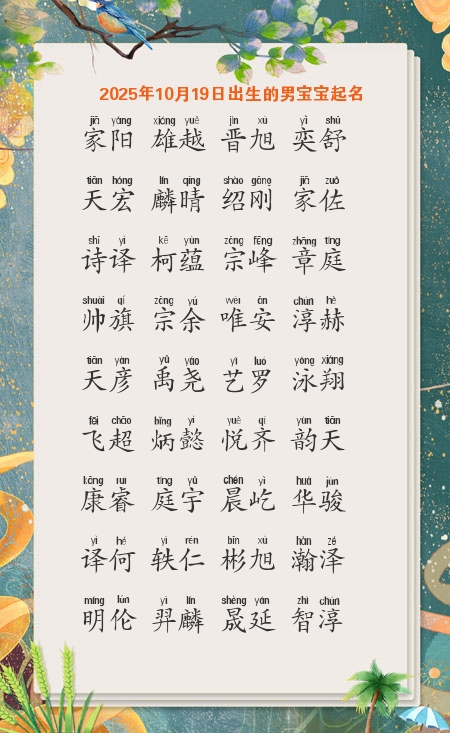 2025年10月19日出生的男宝宝起名
jiā yáng xióng yuè jìn xù yì shū
家阳 雄越 晋旭 奕舒
tiān hóng lín qíng shào gāng jiā zuǒ
天宏 麟晴 绍刚 家佐
shī yì kē yùn zōng fēng zhāng tíng
诗译 柯蕴 宗峰 章庭
shuài qí zōng yú wéi ān chún hè
帅旗 宗余 唯安 淳赫
tiān yàn yǔ yáo yì luó yǒng xiáng
天彦 禹尧 艺罗 泳翔
fēi chāo bǐng yì yuè qí yùn tiān
飞超 炳懿 悦齐 韵天
kāng ruì tíng yǔ chén yì huá jùn
康睿 庭宇 晨屹 华骏
yì hé yì rén bīn xù hàn zé
译何 轶仁 彬旭 瀚泽
míng lún yì lín shèng yán zhì chún
明伦 羿麟 晟延 智淳